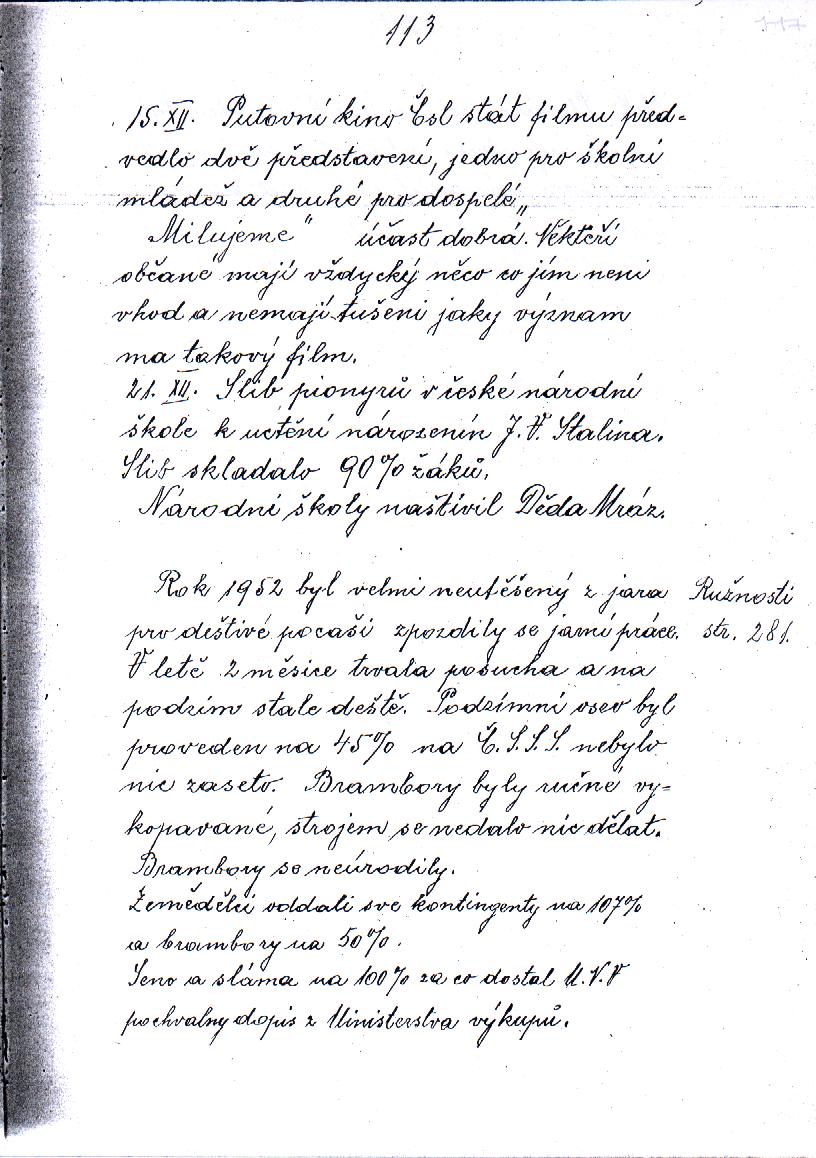 113
117
15. XII. Putovní kino Čsl stát filmu před-
vedlo dvě představení, jedno pro školní
mládež a druhé pro dospelé „
Milujeme" účast dobrá. Někteří
občané mají vždycký něco co jím neni
vhod a nemají tušeni jaky význam
ma takový film.
21. XII. Slib pionyrů v české národní
škole k uctění národzenín J. V. Stalina.
Slib skladalo 90% žáků.
Národní školy naštívil Děda Mráz.
Rok 1952 byl velmi neutěšený z jara
Ružnosti
pro deštivé pocaši zpozdily se jarní práce.
str. 281.
V letě 2 měsíce trvala posucha a na
podzim stale deště. Podzímní osev byl
proveden na 45% na Č.S.S.S. nebylo
nic zaseto. Brambory byly ručně vy-
kopavané, strojem se nedalo nic dělat.
Brambory se neúrodily.
Zemědělci oddali sve kontingenty na 107%
a brambory na 50%.
Seno a sláma na 100% za co dostal M.N.V
pochvalny dopis z Ministerstva výkupů.